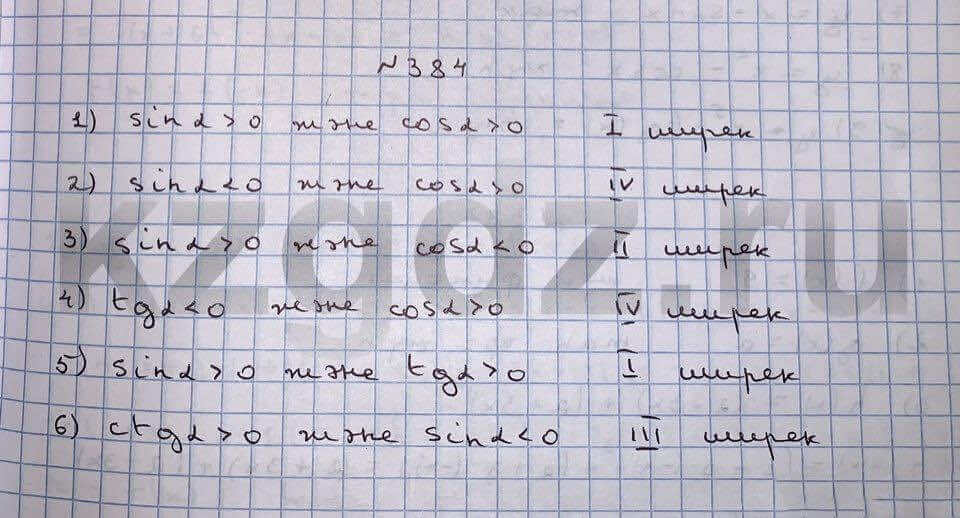 №384
1) sinα>0 және cosα>0 I ширек
2) sinα<0 және cosα>0 IV ширек
3) sinα>0 және cosα<0 II ширек
4) tgα<0 және cosα>0 IV ширек
5) sinα>0 және tgα>0 I ширек
6) ctgα>0 және sinα<0 III ширек
kzgdz.ru